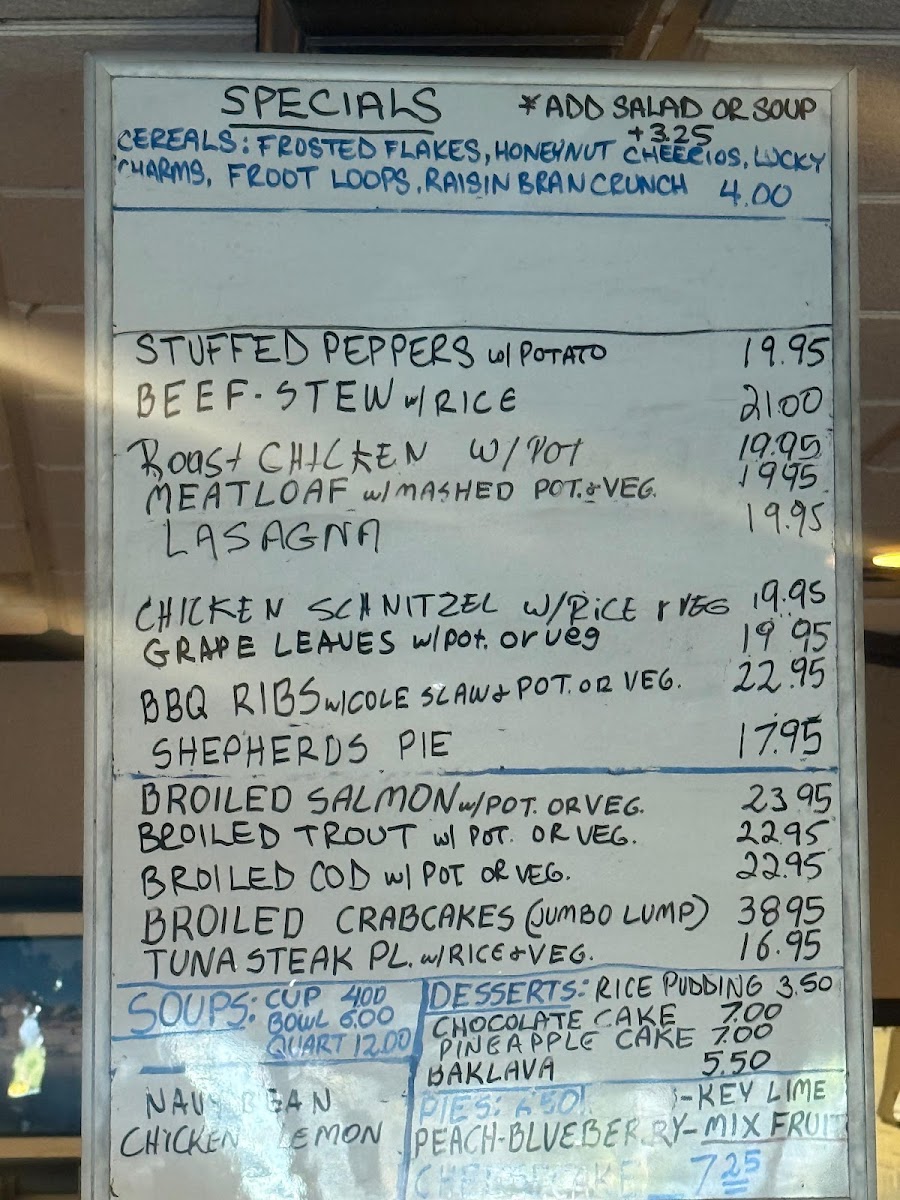 SPECIALS
*ADD SALAD OR SOUP
+3.25
CEREALS: FROSTED FLAKES, HONEYNUT CHEERIOS, LUCKY
CHARMS, FROOT LOOPS, RAISIN BRAN CRUNCH 4.00
STUFFED PEPPERS w/ POTATO 19.95
BEEF-STEW w/ RICE 21.00
Roast CHICKEN W/ POT 19.95
MEATLOAF w/ MASHED POT. & VEG. 19.95
LASAGNA 19.95
CHICKEN SCHNITZEL W/RICE & VEG 19.95
GRAPE LEAVES w/pot. or veg 19.95
BBQ RIBS w/COLE SLAW & POT. OR VEG. 22.95
SHEPHERDS PIE 17.95
BROILED SALMON w/POT. OR VEG. 23.95
BROILED TROUT w/ POT. OR VEG. 22.95
BROILED COD w/ POT OR VEG. 22.95
BROILED CRABCAKES (JUMBO LUMP) 38.95
TUNA STEAK PL. w/RICE & VEG. 16.95
SOUPS: CUP 4.00
BOWL 6.00
QUART 12.00
NAVY BEAN
CHICKEN LEMON
DESSERTS: RICE PUDDING 3.50
CHOCOLATE CAKE 7.00
PINEAPPLE CAKE 7.00
BAKLAVA 5.50
PIES: 6.50 -KEY LIME
PEACH-BLUEBERRY-MIX FRUIT
CHEESECAKE 7.25